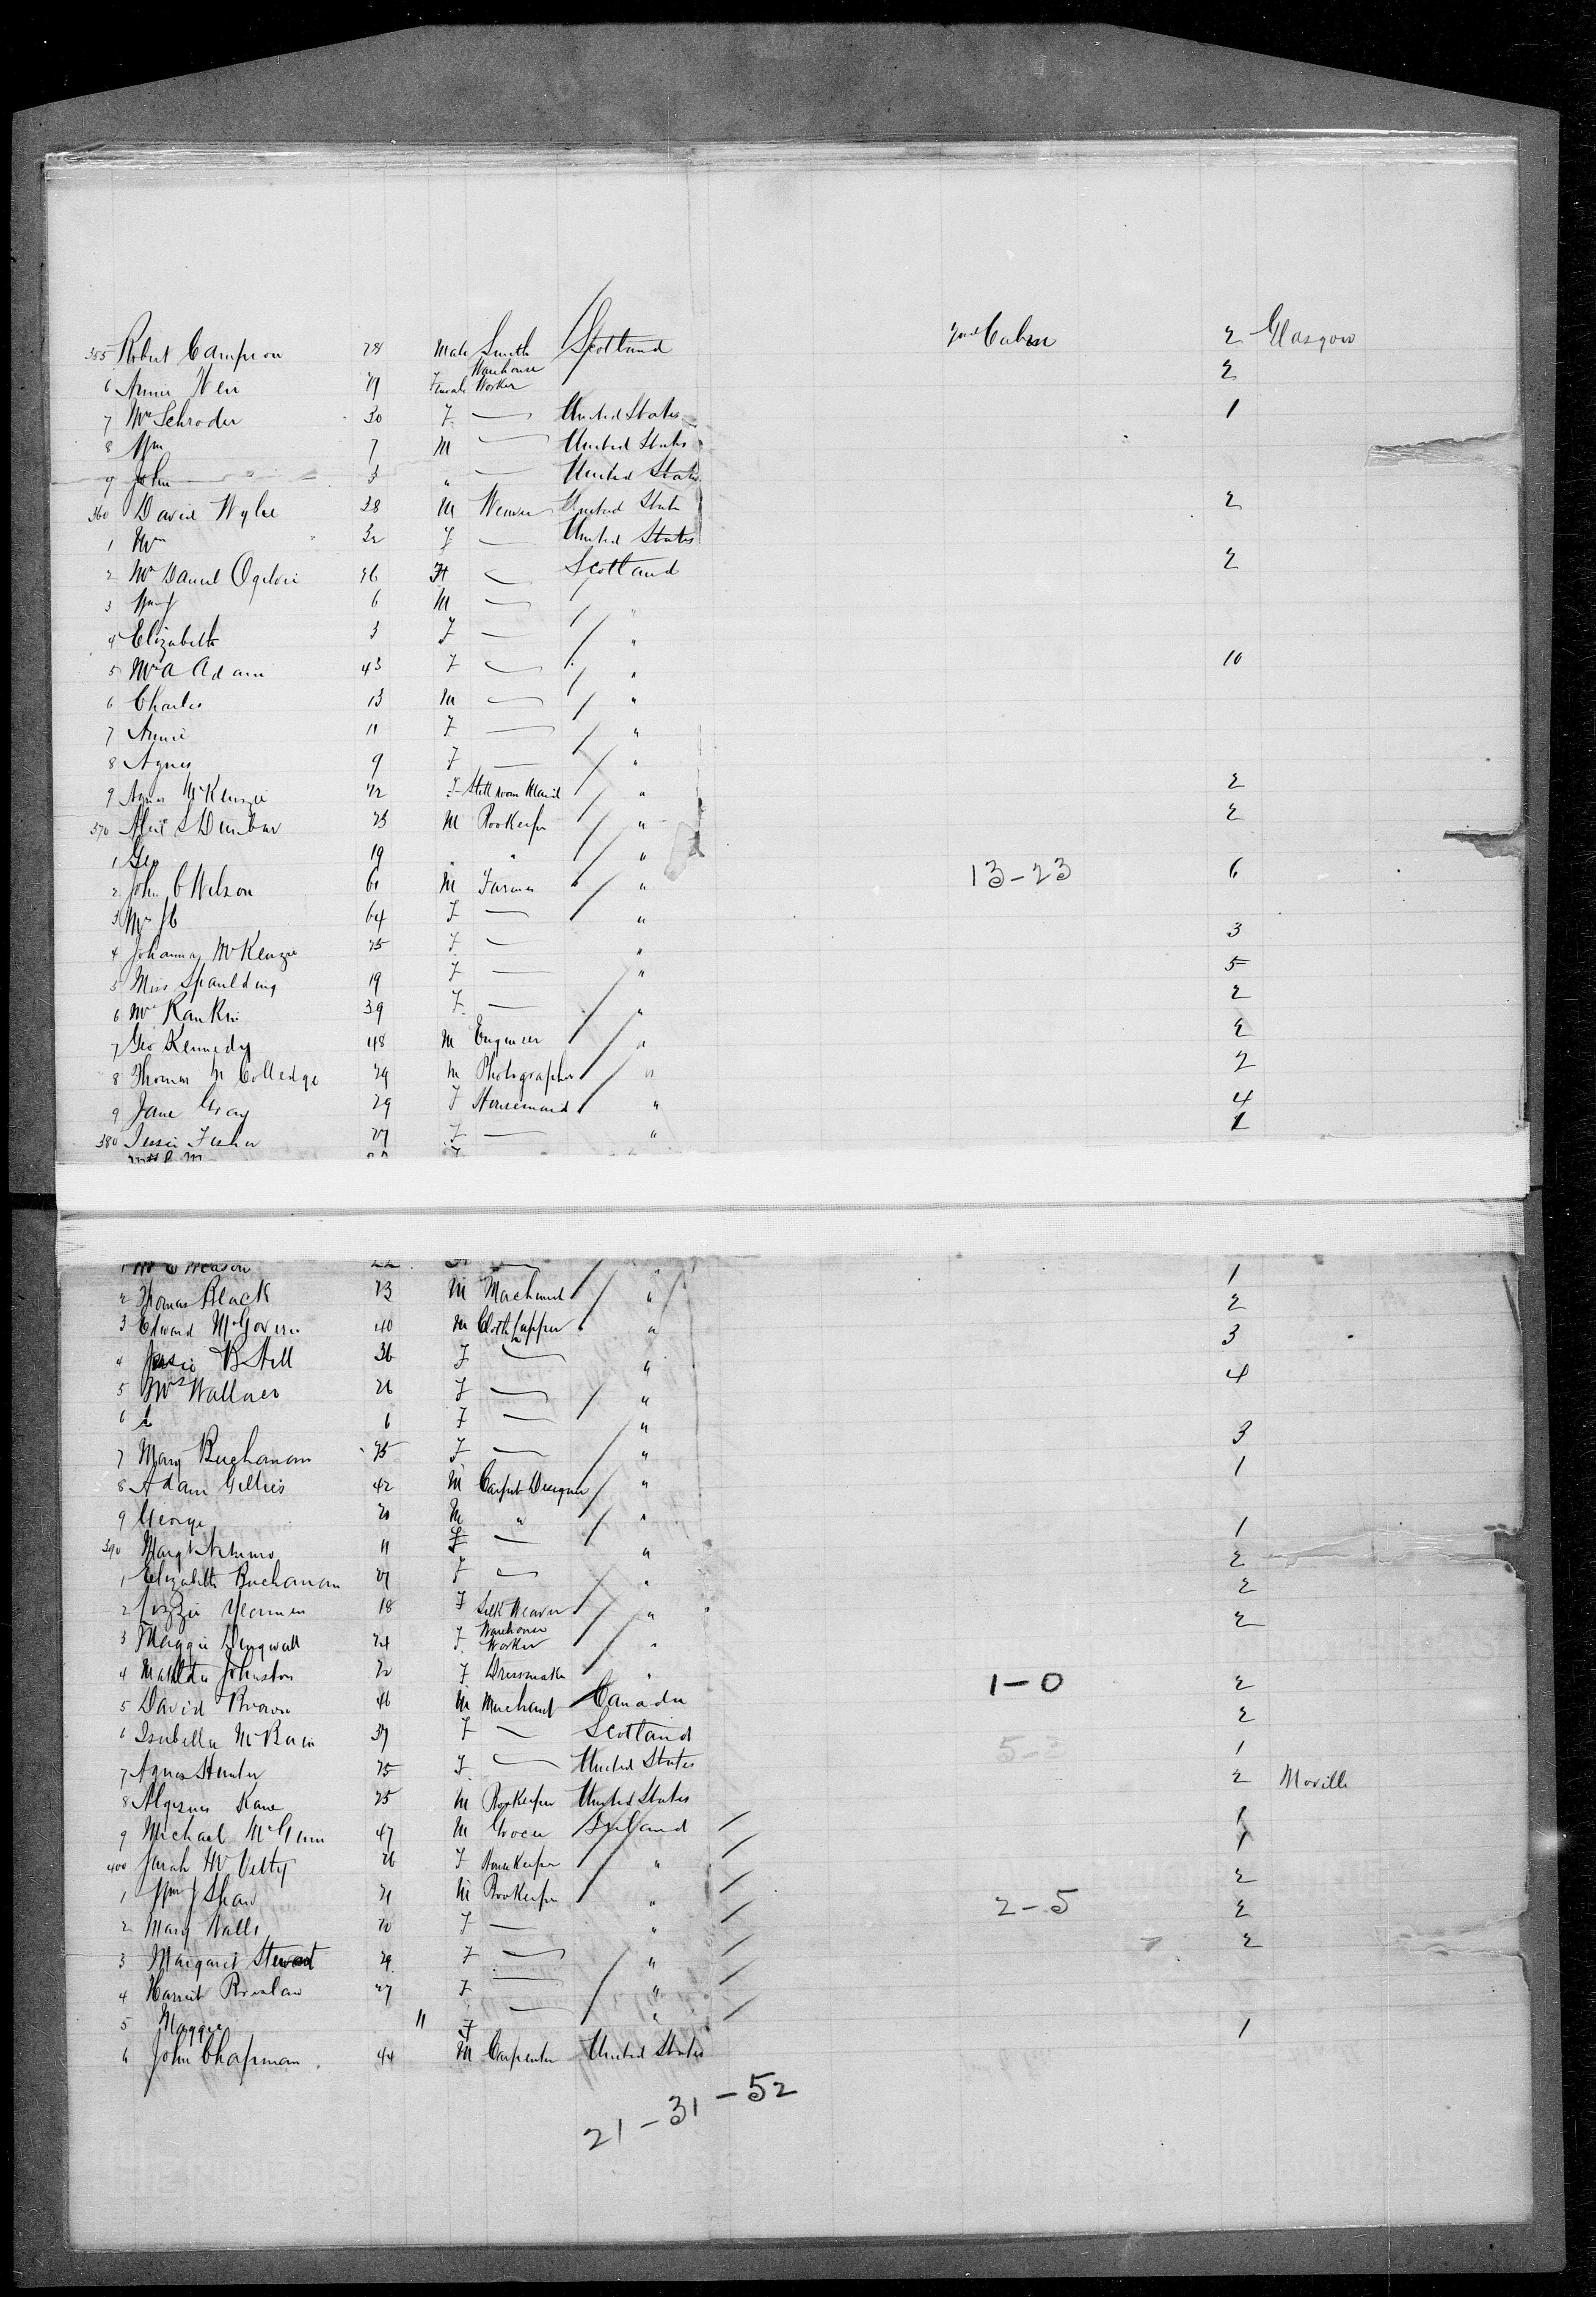 355 Robert Campion 28 Male Smith Scotland 2nd Cabin 2 Glasgow
6 Annie Weir 29 Female Warehouse Worker 2
7 Mrs Schroder 30 F United States 1
8 Wm 7 M United States
9 John 3 " United States
360 David Wylie 38 M Weaver United States 2
1 Mrs 32 F United States
2 Mrs Daniel Ogilvie 26 F Scotland 2
3 Wm J 6 M "
4 Elizabeth 3 F "
5 Mrs A Adam 43 F " 10
6 Charles 13 M "
7 Annie 11 F "
8 Agnes 9 F "
9 Agnes McKenzie 22 F Still room Maid " 2
370 Alex S Dunbar 23 M Bookeeper " 2
1 Geo 19 " " "
2 John C Wilson 61 M Farmer " 13-23 6
3 Mrs JC 64 F "
4 Johanna McKenzie 25 F " 3
5 Miss Spaulding 19 F " 5
6 Mrs Rankin 39 F " 2
7 Geo Kennedy 48 M Engineer " 2
8 Thomas M Colledge 29 M Photographer " 2
9 Jane Gray 29 F Housemaid " 4
380 Jessie Fisher 27 F " 1
1 22 " 1
2 Thomas Black 23 M Machinist " 2
3 Edward McGovern 40 M Cloth Lapper " 3
4 Jessie B Still 36 F " 4
5 Mrs Wallace 26 F "
6 6 F " 3
7 Mary Buchanan 25 F " 1
8 Adam Gillies 42 M Carpet Designer "
9 George 20 M " " 1
390 Margt 11 F " 2
1 Elizabeth Buchanan 27 F " 2
2 Lizzie Yeamen 18 F Silk Weaver " 2
3 Maggie Dingwall 24 F Warehouse Worker "
4 Matilda Johnston 20 F Dressmaker " 1-0 2
5 David Brown 46 M Merchant Canada 2
6 Isabella McBain 39 F Scotland 1
7 Agnes Hunter 25 F United States 2 Moville
8 Kane 25 M Bookeeper United States 1
9 Michael McGinn 47 M Grocer Ireland 1
400 Sarah McVitty 26 F Housekeeper " 2
1 Wm J Shaw 21 M Bookeeper " 2-5 2
2 Mary Walls 20 F " 2
3 Margaret Stewart 29 F "
4 Harriet 27 F "
5 Maggie 11 F " 1
6 John Chapman 44 M Carpenter United States
21-31-52